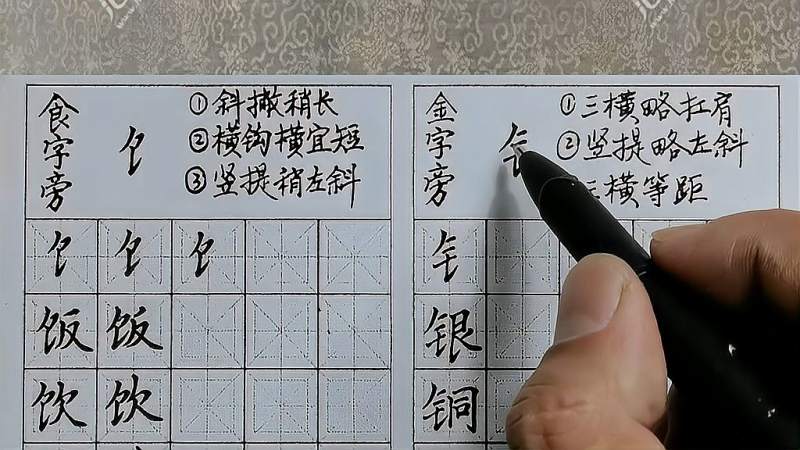 食字旁
饣
①斜撇稍长
②横钩横宜短
③竖提稍左斜
饣 饣 饣
饭 饭
饮 饮
金字旁
钅
①三横略扛肩
②竖提略左斜
三横等距
钅
银
铜